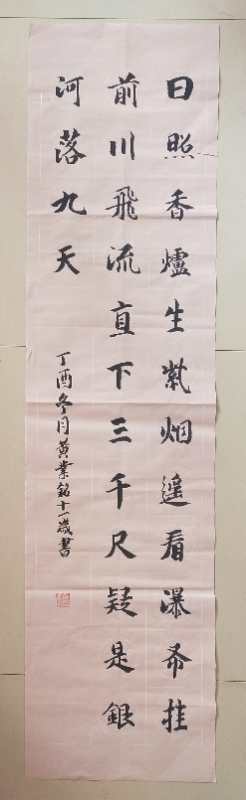 日照香爐生紫烟遥看瀑布挂
前川飛流直下三千尺疑是銀
河落九天
丁酉冬月黄業銘十一歲書